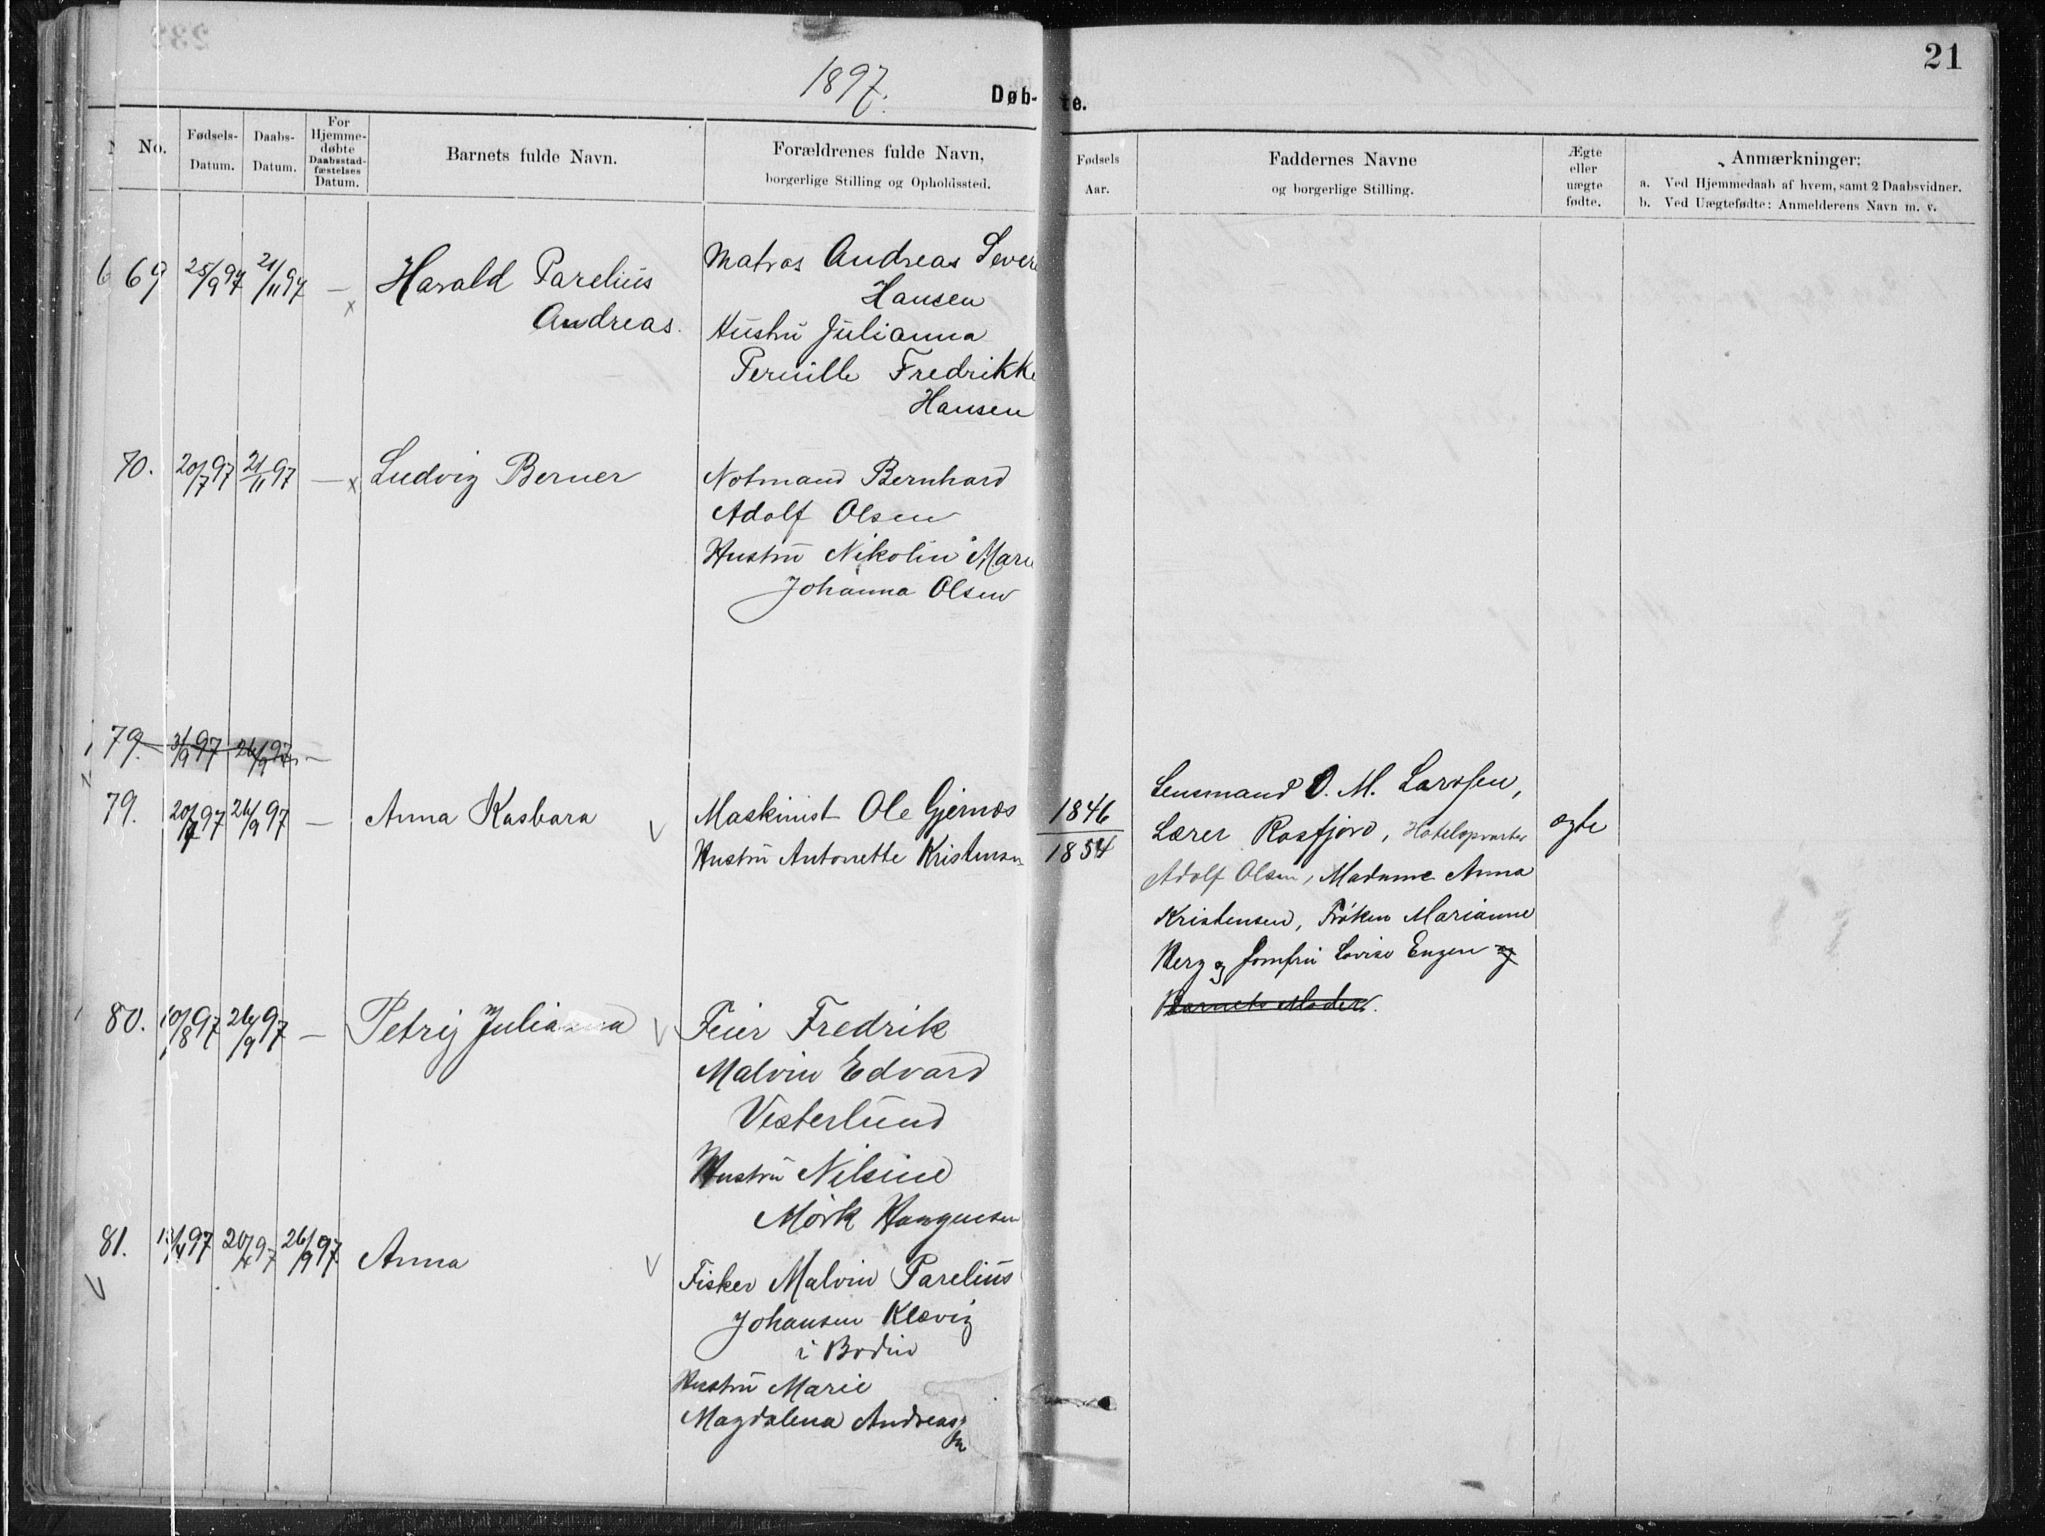 1897.
21
Døb-
te.
No.
Fødsels-
Datum.
Daabs-
Datum.
For
Hjemme-
døbte
Daabsstad-
fæstelses
Datum.
Barnets fulde Navn.
Forældrenes fulde Navn,
borgerlige Stilling og Opholdssted.
Fødsels
Aar.
Faddernes Navne
og borgerlige Stilling.
Ægte
eller
uægte
fødte.
Anmærkninger:
a. Ved Hjemmedaab af hvem, samt 2 Daabsvidner.
b. Ved Uægtefødte: Anmelderens Navn m. v.
69 25/9 97 21/11 97 —
Harald Parelius
Andreas.
Matros Andreas Sever
Hansen
Hustru Julianna
Pernille Fredrikke
Hansen
70. 20/7 97 21/11 97 —
Ludvig Berner
Notmand Bernhard
Adolf Olsen
Hustru Nikolin Marie
Johanna Olsen
79. 31/9 97 26/9 97 —
79. 20/7 97 26/9 97 —
Anna Kasbara
Maskinist Ole Gjernæs
Hustru Antonette Kristensen
1846
1854
Lensmand O. M. Larssen,
Lærer Rosfjord, Hotelopvarter
Adolf Olsen, Madame Anna
Kristensen, Frøken Marianne
Berg og Jomfru Lovise Engen og
Barnets Moder.
ægte
80. 10/8 97 26/9 97 —
Petrij Julianna
Feier Fredrik
Malvin Edvard
Vesterlund
Hustru Nilsine
Mørk Haagensen
81. 13/4 97 20/4 97 26/9 97
Anna
Fisker Malvin Parelius
Johansen Klævig
i Bodin
Hustru Marie
Magdalena Andreas-